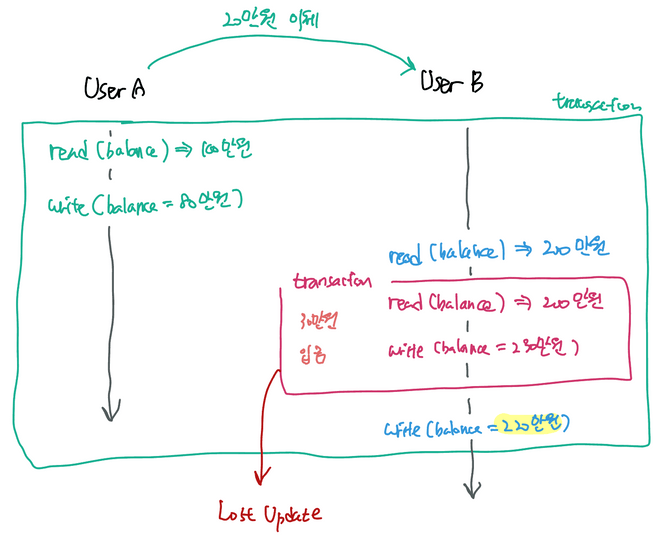 20만원 이체
User A
User B
transaction
read (balance) ⇒ 100만원
write (balance = 80만원)
read (balance) ⇒ 200만원
transaction
read (balance) ⇒ 200만원
30만원
입금
write (balance = 230만원)
write (balance = 220만원)
Lost Update